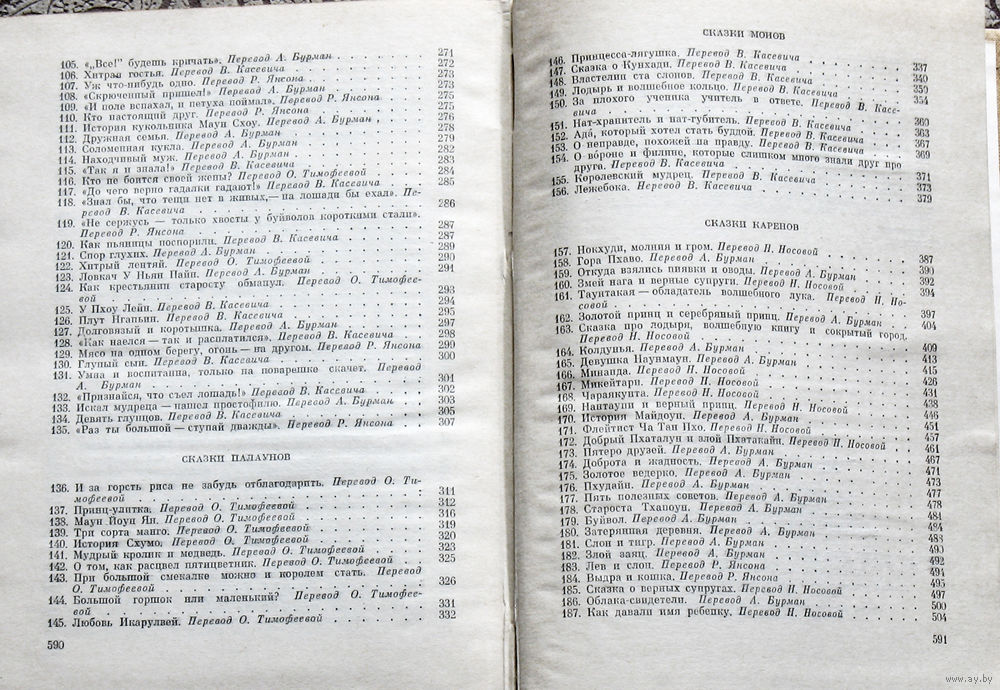 105. «„Все!" будешь кричать». Перевод А. Бурман 271
106. Хитрая гостья. Перевод В. Касевича 272
107. Уж что-нибудь одно. Перевод Р. Янсона 273
108. «Скрюченный пришел!» Перевод А. Бурман 273
109. «И поле вспахал, и петуха поймал». Перевод Р. Янсона 275
110. Кто настоящий друг. Перевод Р. Янсона 275
111. История кукольника Маун Схоу. Перевод А. Бурман 276
112. Дружная семья. Перевод А. Бурман 278
113. Соломенная кукла. Перевод А. Бурман 279
114. Находчивый муж. Перевод А. Бурман 282
115. «Так я и знала!» Перевод В. Касевича 283
116. Кто не боится своей жены? Перевод О. Тимофеевой 284
117. «До чего верно гадалки гадают!» Перевод В. Касевича 285
118. «Знал бы, что тещи нет в живых,— на лошади бы ехал». Пе-
ревод В. Касевича 286
119. «Не сержусь — только хвосты у буйволов короткими стали».
Перевод Р. Янсона 287
120. Как пьяницы поспорили. Перевод В. Касевича 287
121. Спор глухих. Перевод А. Бурман 289
122. Хитрый лентяй. Перевод О. Тимофеевой 290
123. Ловкач У Ньян Пайн. Перевод А. Бурман 291
124. Как крестьянин старосту обманул. Перевод О. Тимофее-
вой 293
125. У Пхоу Лейн. Перевод В. Касевича 294
126. Плут Нганьин. Перевод В. Касевича 295
127. Долговязый и коротышка. Перевод А. Бурман 297
128. «Как наелся — так и расплатился». Перевод В. Касевича 298
129. Мясо на одном берегу, огонь — на другом. Перевод Р. Янсона 299
130. Глупый сын. Перевод В. Касевича 300
131. Умна и воспитанна, только на поварешке скачет. Перевод
А. Бурман 301
132. «Признайся, что съел лошадь!» Перевод В. Касевича 302
133. Искал мудреца — нашел простофилю. Перевод А. Бурман 303
134. Девять глупцов. Перевод В. Касевича 305
135. «Раз ты большой — ступай дважды». Перевод Р. Янсона 307
СКАЗКИ ПАЛАУНОВ
136. И за горсть риса не забудь отблагодарить. Перевод О. Ти-
мофеевой 311
137. Принц-улитка. Перевод О. Тимофеевой 312
138. Маун Йоун Ян. Перевод О. Тимофеевой 316
139. Три сорта манго. Перевод О. Тимофеевой 319
140. История Схумо. Перевод О. Тимофеевой 320
141. Мудрый кролик и медведь. Перевод О. Тимофеевой 323
142. О том, как расцвел пятицветник. Перевод О. Тимофеевой 325
143. При большой смекалке можно и королем стать. Перевод
О. Тимофеевой 326
144. Большой горшок или маленький? Перевод О. Тимофее-
вой 331
145. Любовь Икарулвей. Перевод О. Тимофеевой 332
590
СКАЗКИ МОНОВ
146. Принцесса-лягушка. Перевод В. Касевича 337
147. Сказка о Кунхади. Перевод В. Касевича 340
148. Властелин ста слонов. Перевод В. Касевича 350
149. Лодырь и волшебное кольцо. Перевод В. Касевича 354
150. За плохого ученика учитель в ответе. Перевод В. Касе-
вича 360
151. Нат-хранитель и нат-губитель. Перевод В. Касевича 363
152. Ада, который хотел стать буддой. Перевод В. Касевича 367
153. О неправде, похожей на правду. Перевод В. Касевича 369
154. О вороне и филине, которые слишком много знали друг про
друга. Перевод В. Касевича 371
155. Королевский мудрец. Перевод В. Касевича 373
156. Лежебока. Перевод В. Касевича 379
СКАЗКИ КАРЕНОВ
157. Нокхуди, молния и гром. Перевод Н. Носовой 387
158. Гора Пхаво. Перевод А. Бурман 390
159. Откуда взялись пиявки и оводы. Перевод А. Бурман 392
160. Змей нага и верные супруги. Перевод Н. Носовой 394
161. Таунтакая — обладатель волшебного лука. Перевод Н. Но-
совой 397
162. Золотой принц и серебряный принц. Перевод А. Бурман 404
163. Сказка про лодыря, волшебную книгу и сокрытый город.
Перевод Н. Носовой 409
164. Колдунья. Перевод А. Бурман 413
165. Девушка Наунмаун. Перевод А. Бурман 415
166. Минанда. Перевод Н. Носовой 426
167. Микейтари. Перевод Н. Носовой 431
168. Чараякунта. Перевод Н. Носовой 438
169. Нантауни и верный принц. Перевод Н. Носовой 446
170. История Майдоун. Перевод А. Бурман 451
171. Флейтист Ча Тан Пхо. Перевод Н. Носовой 457
172. Добрый Пхаталун и злой Пхэтакайн. Перевод Н. Носовой 461
173. Пятеро друзей. Перевод А. Бурман 467
174. Доброта и жадность. Перевод А. Бурман 471
175. Золотое ведерко. Перевод А. Бурман 473
176. Пхудайн. Перевод А. Бурман 477
177. Пять полезных советов. Перевод А. Бурман 478
178. Староста Тхапоун. Перевод А. Бурман 481
179. Буйвол. Перевод А. Бурман 484
180. Затерянная деревня. Перевод А. Бурман 488
181. Слон и тигр. Перевод А. Бурман 490
182. Злой заяц. Перевод А. Бурман 492
183. Лев и слон. Перевод Р. Янсона 494
184. Выдра и кошка. Перевод Р. Янсона 495
185. Сказка о верных супругах. Перевод А. Бурман 497
186. Облака-свидетели. Перевод А. Бурман 500
187. Как давали имя ребенку. Перевод Н. Носовой 504
591
www.ay.by